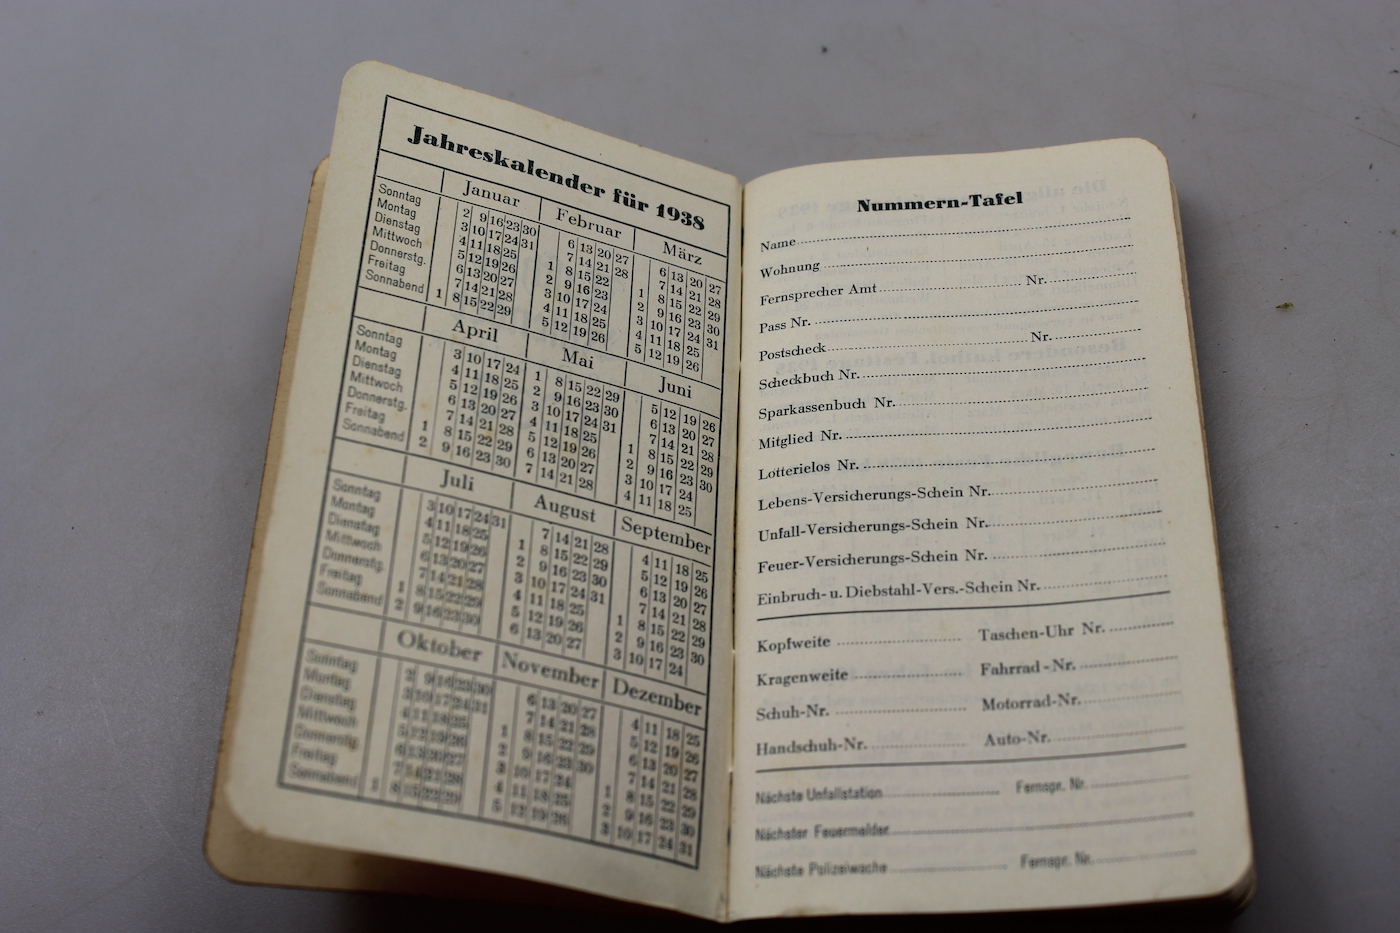 Jahreskalender für 1938
Januar Februar März
Sonntag 2 9 16 23 30 6 13 20 27 6 13 20 27
Montag 3 10 17 24 31 7 14 21 28 7 14 21 28
Dienstag 4 11 18 25 1 8 15 22 1 8 15 22 29
Mittwoch 5 12 19 26 2 9 16 23 2 9 16 23 30
Donnerstg. 6 13 20 27 3 10 17 24 3 10 17 24 31
Freitag 7 14 21 28 4 11 18 25 4 11 18 25
Sonnabend 1 8 15 22 29 5 12 19 26 5 12 19 26
April Mai Juni
Sonntag 3 10 17 24 1 8 15 22 29 5 12 19 26
Montag 4 11 18 25 2 9 16 23 30 6 13 20 27
Dienstag 5 12 19 26 3 10 17 24 31 7 14 21 28
Mittwoch 6 13 20 27 4 11 18 25 1 8 15 22 29
Donnerstg. 7 14 21 28 5 12 19 26 2 9 16 23 30
Freitag 1 8 15 22 29 6 13 20 27 3 10 17 24
Sonnabend 2 9 16 23 30 7 14 21 28 4 11 18 25
Juli August September
Sonntag 3 10 17 24 31 7 14 21 28 4 11 18 25
Montag 4 11 18 25 1 8 15 22 29 5 12 19 26
Dienstag 5 12 19 26 2 9 16 23 30 6 13 20 27
Mittwoch 6 13 20 27 3 10 17 24 31 7 14 21 28
Donnerstg. 7 14 21 28 4 11 18 25 1 8 15 22 29
Freitag 1 8 15 22 29 5 12 19 26 2 9 16 23 30
Sonnabend 2 9 16 23 30 6 13 20 27 3 10 17 24
Oktober November Dezember
Sonntag 2 9 16 23 30 6 13 20 27 4 11 18 25
Montag 3 10 17 24 31 7 14 21 28 5 12 19 26
Dienstag 4 11 18 25 1 8 15 22 29 6 13 20 27
Mittwoch 5 12 19 26 2 9 16 23 30 7 14 21 28
Donnerstg. 6 13 20 27 3 10 17 24 1 8 15 22 29
Freitag 7 14 21 28 4 11 18 25 2 9 16 23 30
Sonnabend 1 8 15 22 29 5 12 19 26 3 10 17 24 31
Nummern-Tafel
Name
Wohnung
Fernsprecher Amt Nr.
Pass Nr.
Postscheck Nr.
Scheckbuch Nr.
Sparkassenbuch Nr.
Mitglied Nr.
Lotterielos Nr.
Lebens-Versicherungs-Schein Nr.
Unfall-Versicherungs-Schein Nr.
Feuer-Versicherungs-Schein Nr.
Einbruch- u. Diebstahl-Vers.-Schein Nr.
Kopfweite Taschen-Uhr Nr.
Kragenweite Fahrrad-Nr.
Schuh-Nr. Motorrad-Nr.
Handschuh-Nr. Auto-Nr.
Nächste Unfallstation Fernspr. Nr.
Nächster Feuermelder
Nächste Polizeiwache Fernspr. Nr.